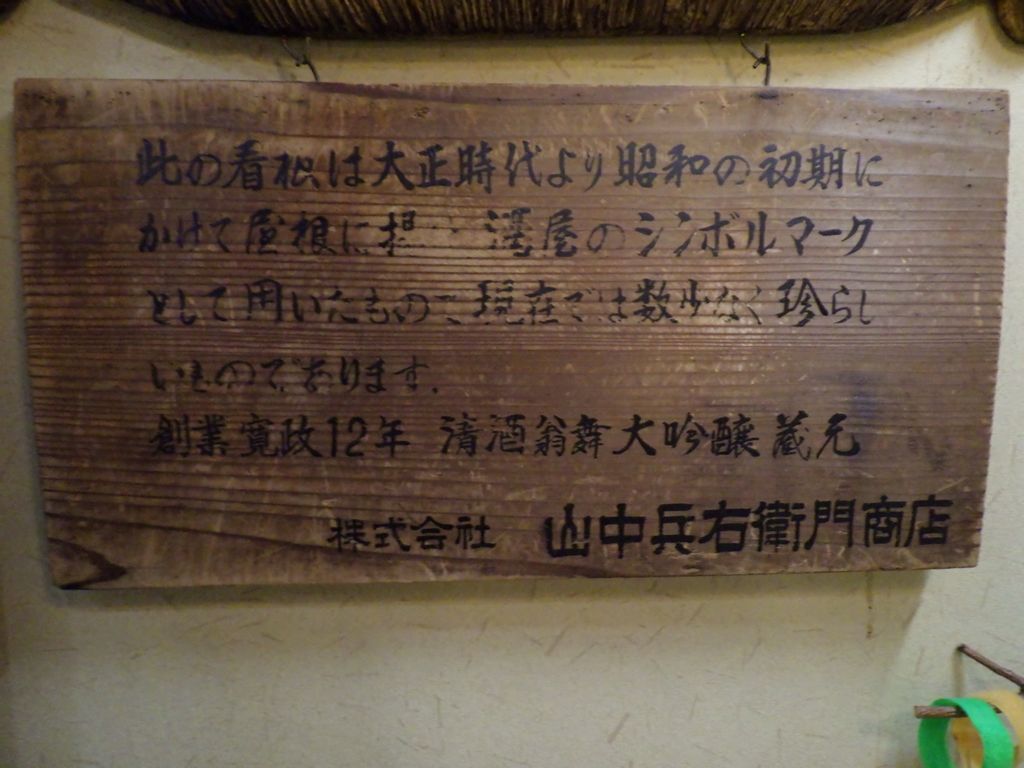 此の看板は大正時代より昭和の初期に
かけて屋根に 屋のシンボルマーク
として用いたもので現在では数少なく珍らし
いものであります.
創業寛政12年 清酒翁舞大吟醸蔵元
株式会社 山中兵右衛門商店